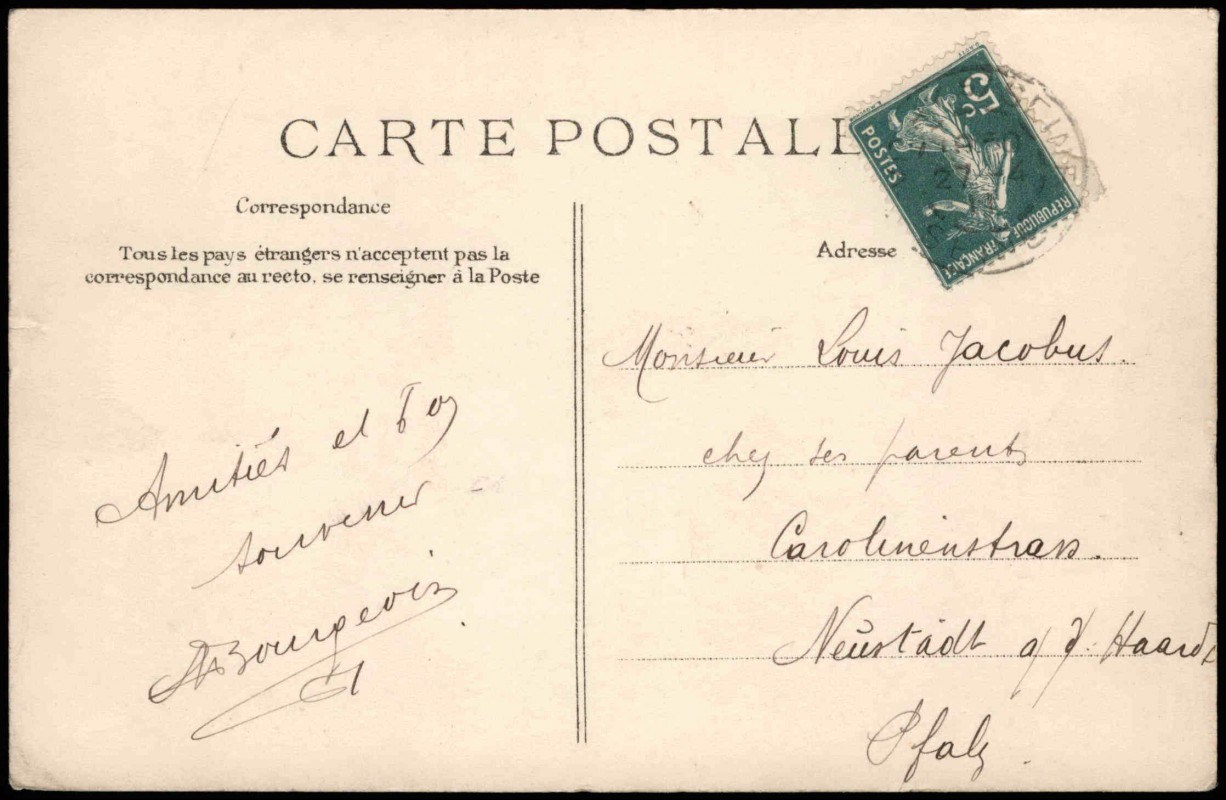 CARTE POSTALE
Correspondance
Tous les pays étrangers n'acceptent pas la
correspondance au recto, se renseigner à la Poste
Amitiés et
souvenir
Bourgeois
5c
POSTES
REPUBLIQUE FRANÇAISE
27
Adresse
Monsieur Louis Jacobus.
chez ses parents
Carolinenstrass.
Neustadt a/d. Haardt
Pfalz.